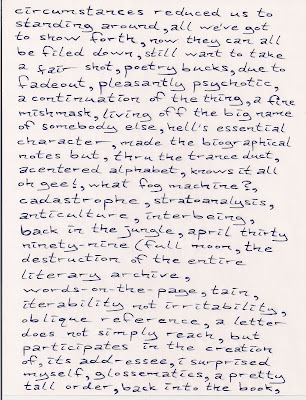 circumstances reduced us to
standing around, all we've got
to show forth, now they can all
be filed down, still want to take
a fair shot, poetry bucks, due to
fadeout, pleasantly psychotic,
a continuation of the thing, a fine
mishmash, living off the big name
of somebody else, hell's essential
character, made the biographical
notes but, thru the trance dust,
acentered alphabet, knows it all
oh gee!, what fog machine?,
cadastrophe, stratoanalysis,
anticulture, interbeing,
back in the jungle, april thirty
ninety-nine (full moon, the
destruction of the entire
literary archive,
words-on-the-page, tain,
iterability not irritability,
oblique reference, a letter
does not simply reach, but
participates in the creation
of, its add-essee, i surprised
myself, glossematics, a pretty
tall order, back into the book,